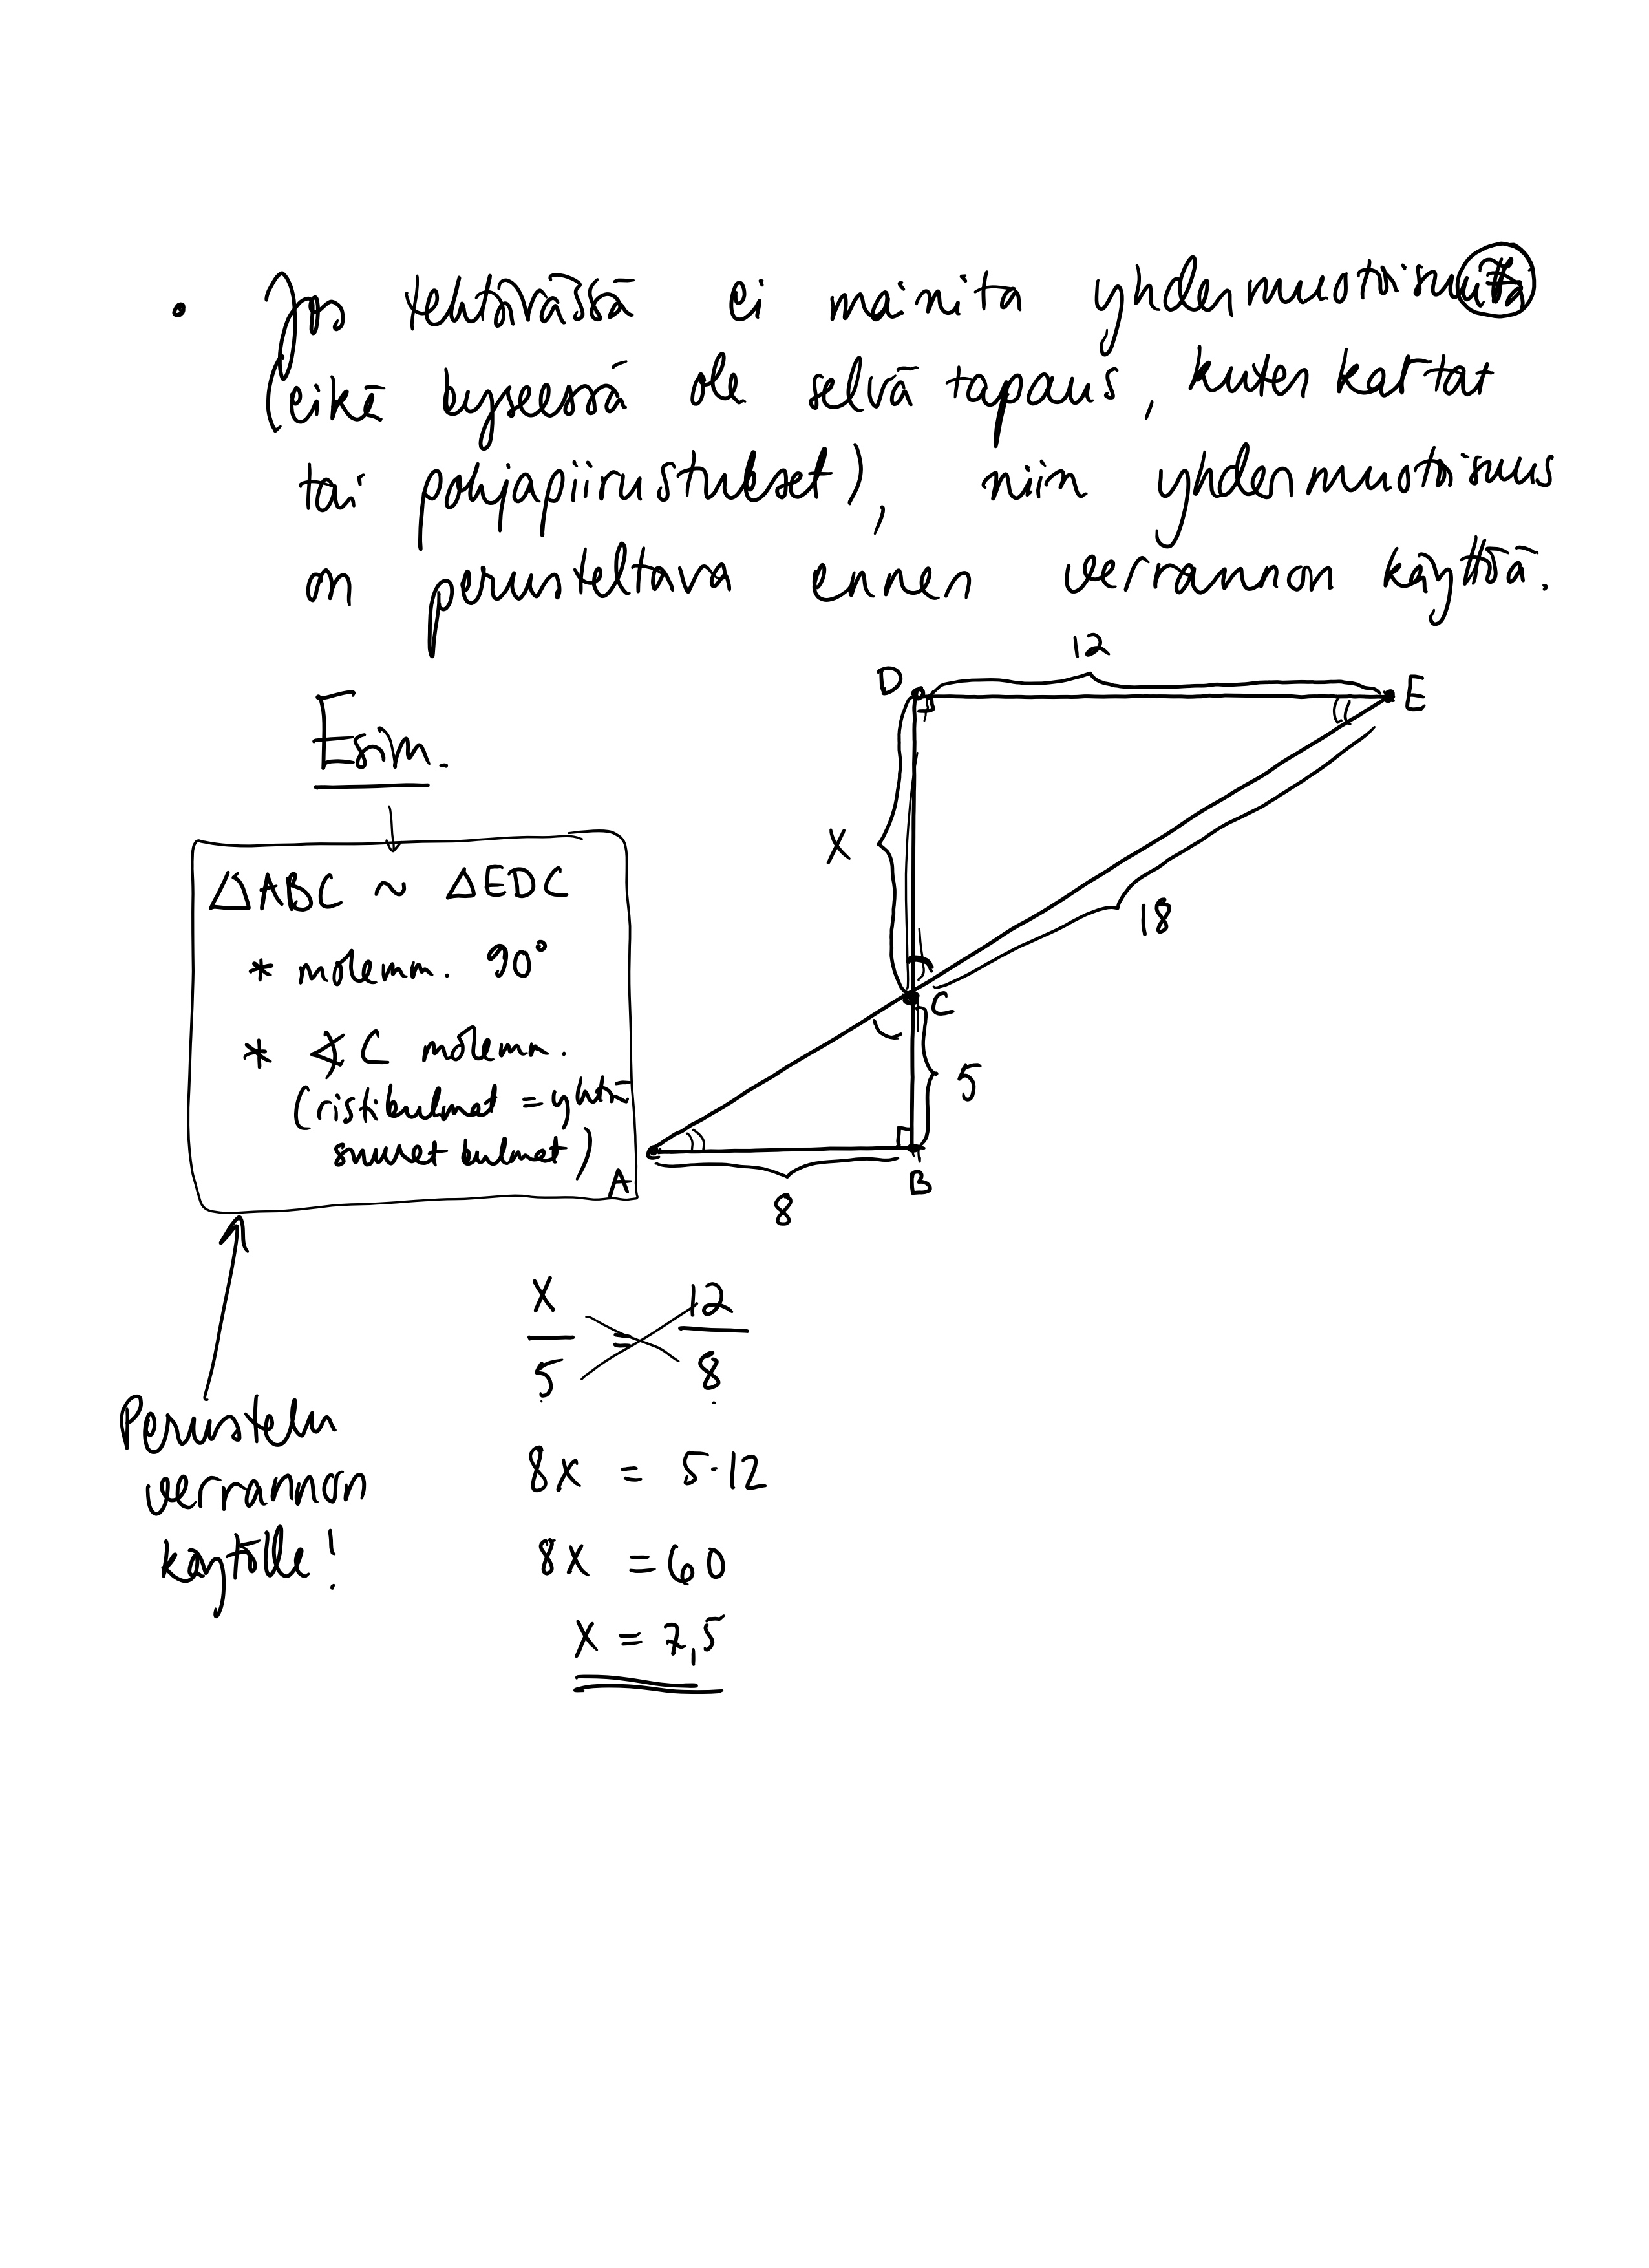 • Jos tehtävässä ei mainita yhdenmuotoisuutta
(eikä kyseessä ole selvä tapaus, kuten kartat
tai pohjapiirustukset), niin yhdenmuotoisuus
on perusteltava ennen verrannon käyttöä.
Esim.
△ABC ~ △EDC
* molemm. 90°
* ∢C molemm.
(ristikulmat = yhtä
suuret kulmat)
Perustelu
verrannon
käytölle!
12
D
E
x
18
C
5
A
B
8
x/5 = 12/8
8x = 5·12
8x = 60
x = 7,5